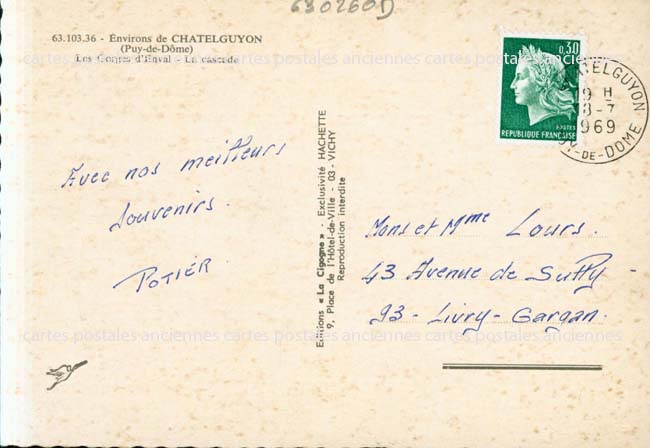 630260D
63.103.36 - Environs de CHATELGUYON
(Puy-de-Dôme)
Les Gorges d'Enval - La cascade
cartes postales anciennes cartes postales anciennes cartes postales anciennes
0,30
POSTES
REPUBLIQUE FRANÇAISE
CHATELGUYON
19 H
8-7
1969
PUY-DE-DOME
Avec nos meilleurs
souvenirs.
POTIER.
Editions « La Cigogne » - Exclusivité HACHETTE
9, Place de l'Hôtel-de-Ville - 03 - VICHY
Reproduction interdite
Mons et Mme Lours.
43 Avenue de Suffy -
93 - Livry-Gargan.
cartes postales anciennes cartes postales anciennes cartes postales anciennes